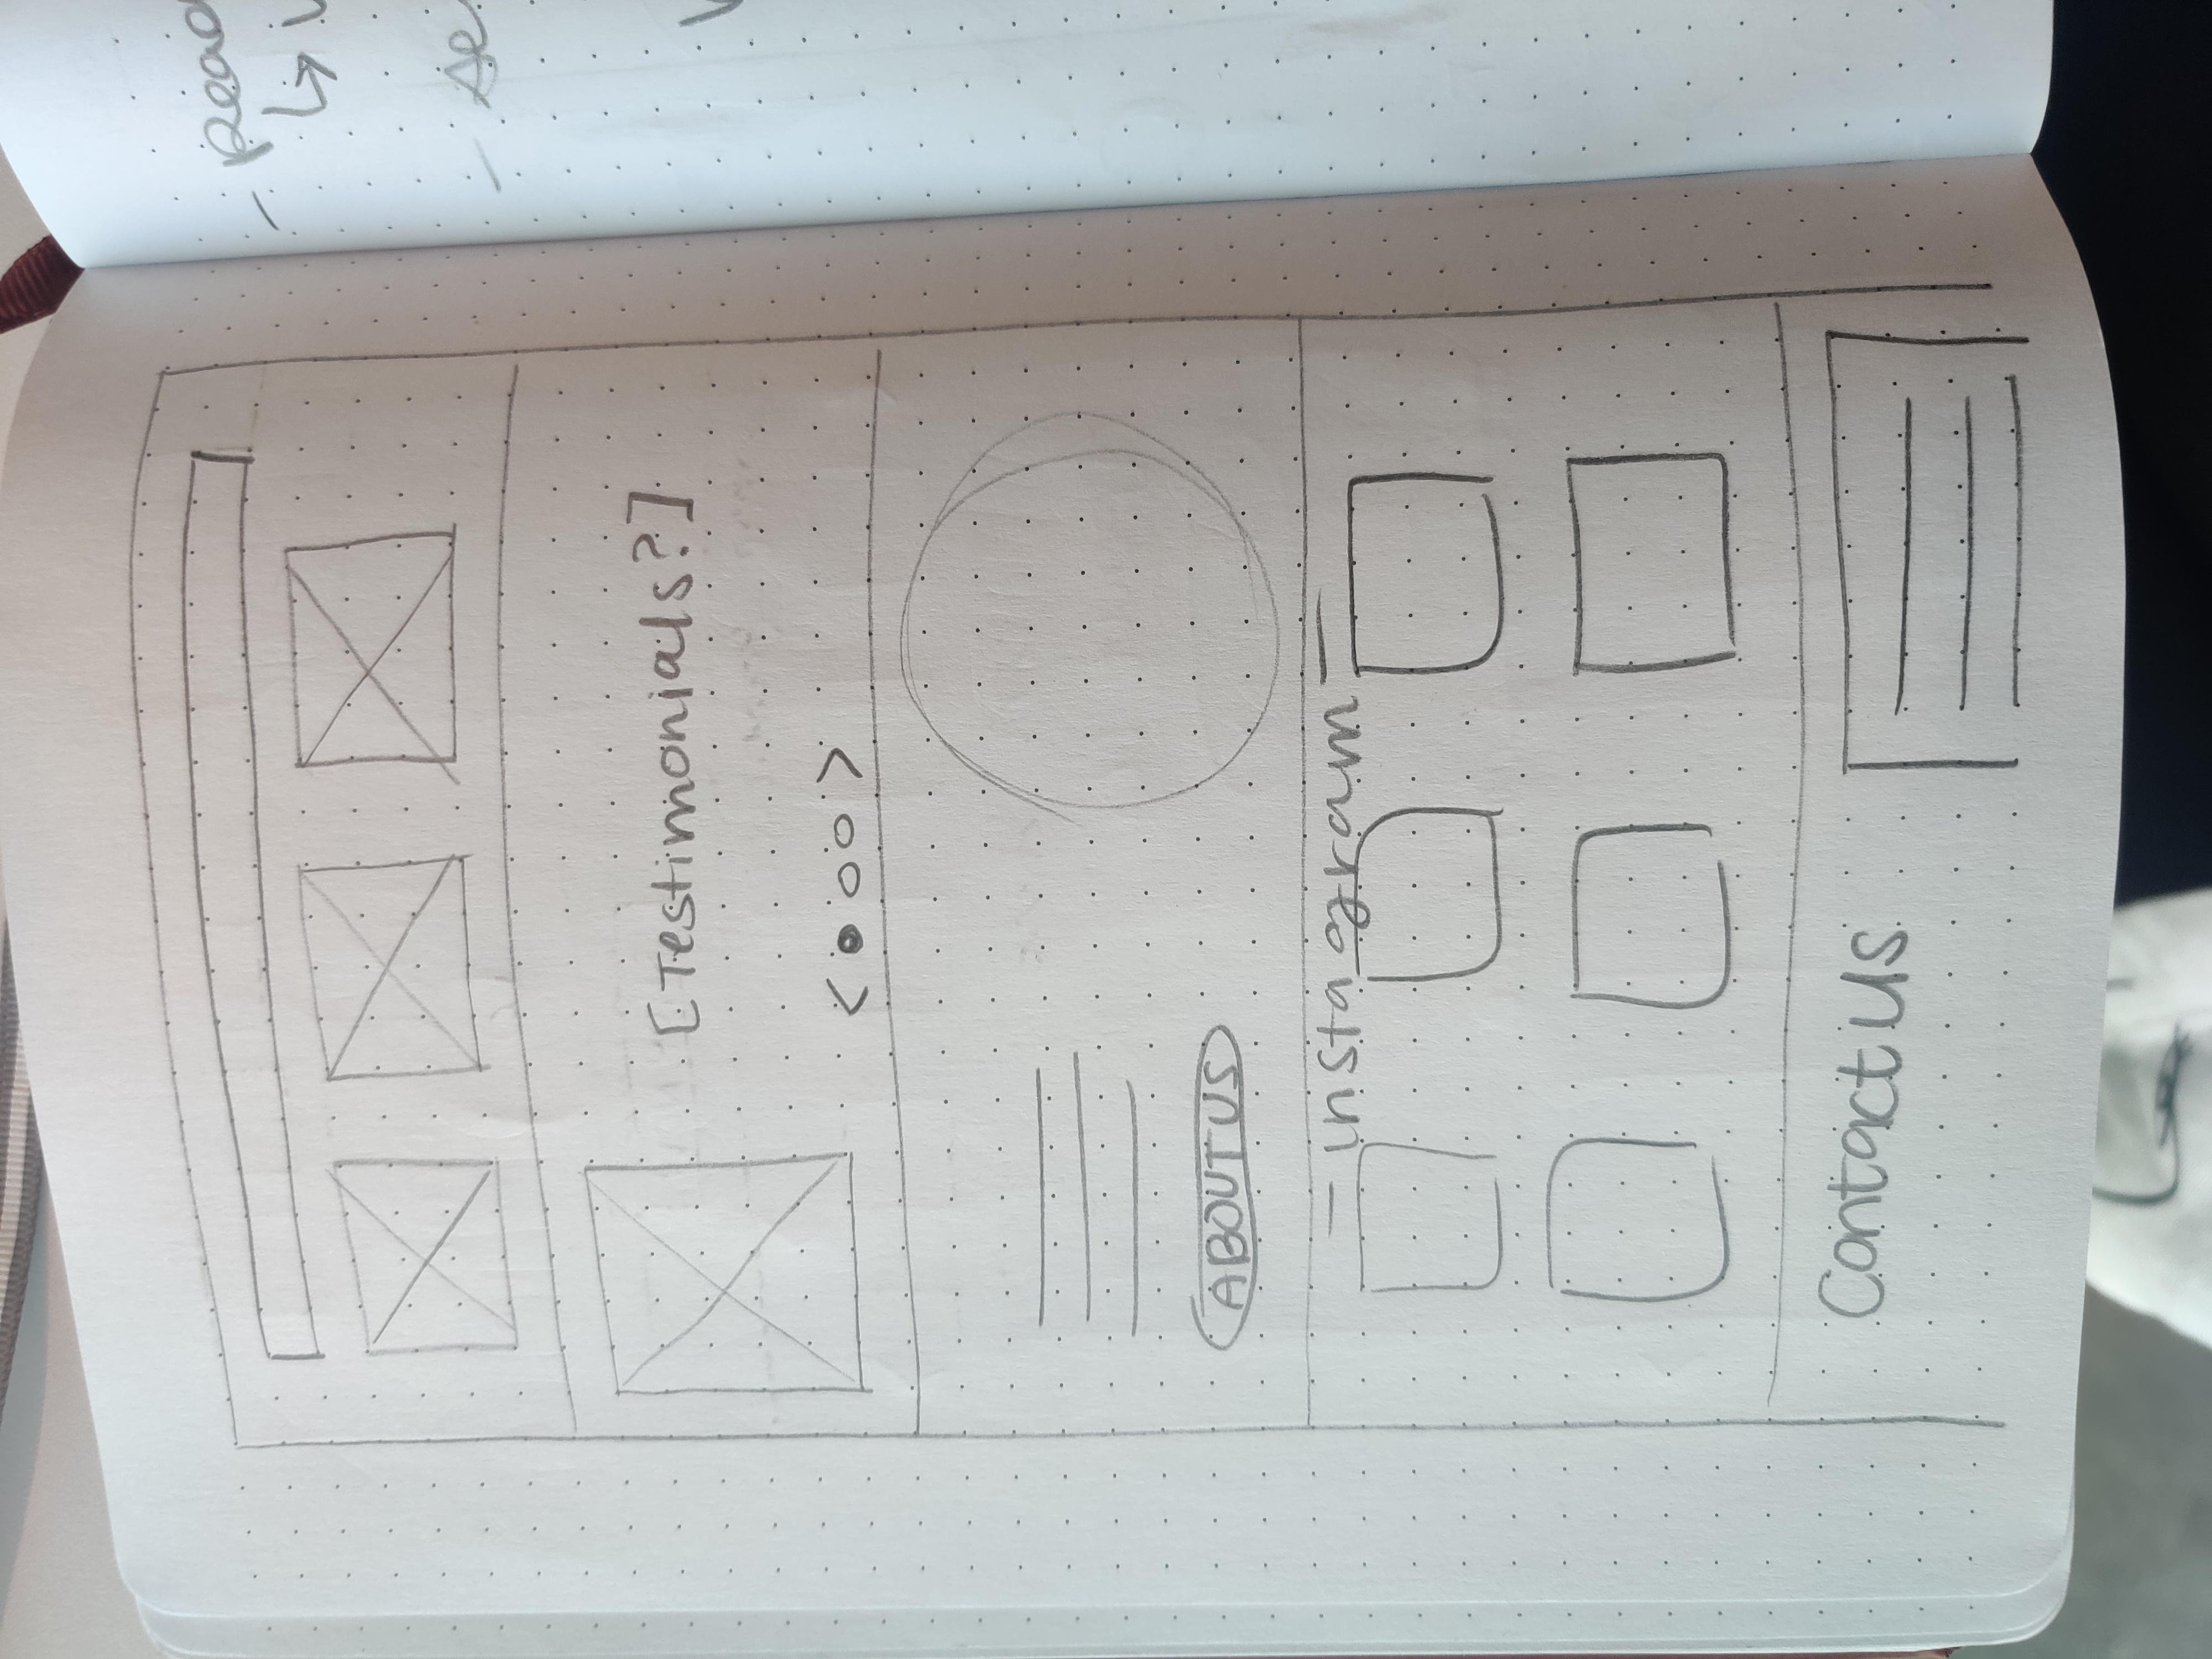 [Testimonials?]
< ● ○ ○ >
ABOUT US
- instagram -
Contact Us
- 
↳
-